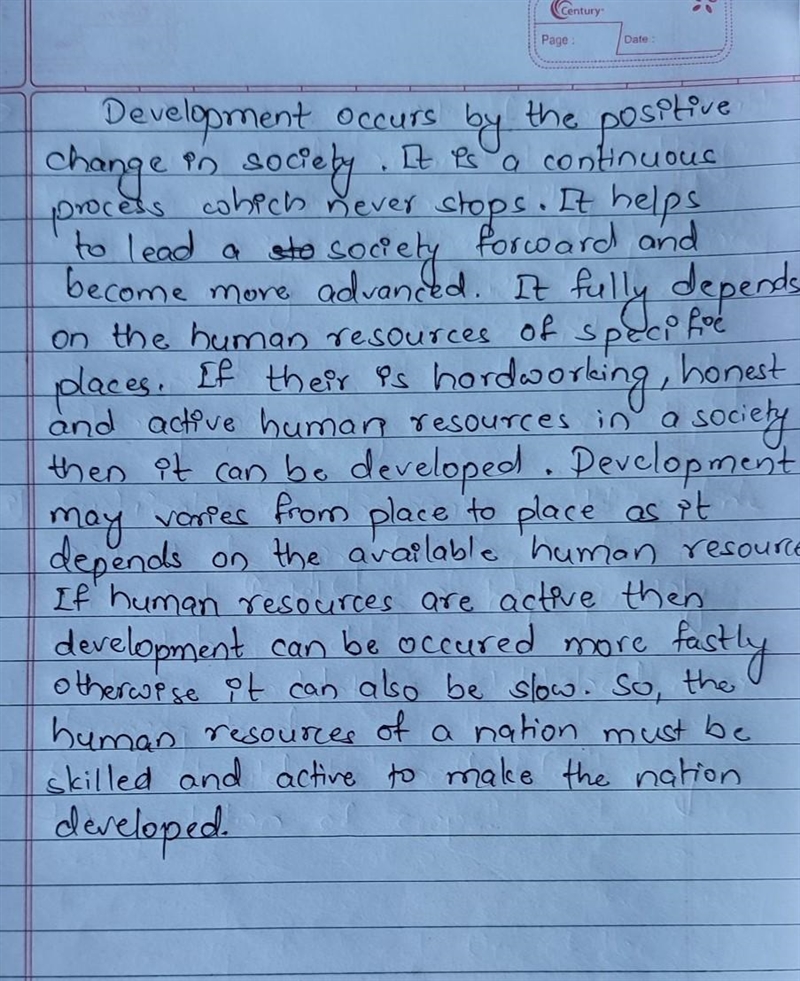 Century
Page :
Date :
Development occurs by the positive
change in society. It is a continuous
process which never stops. It helps
to lead a sto society forward and
become more advanced. It fully depends
on the human resources of specific
places. If their is hardworking, honest
and active human resources in a society
then it can be developed. Development
may varies from place to place as it
depends on the available human resource
If human resources are active then
development can be occured more fastly
otherwise it can also be slow. So, the
human resources of a nation must be
skilled and active to make the nation
developed.